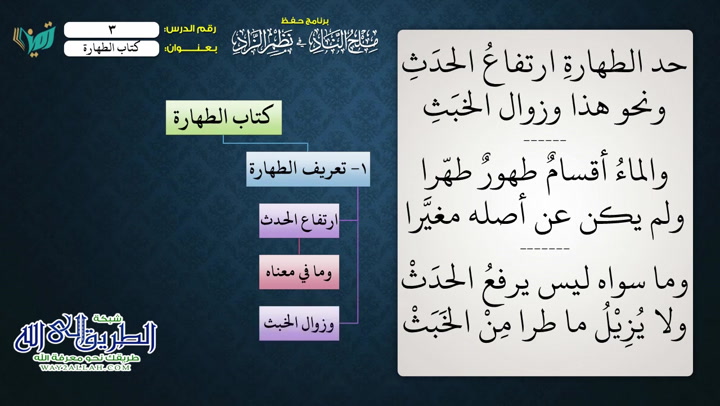 برنامج حفظ
مِلح النَّاد في نظم الزَّاد
رقم الدرس: ٣
بعنوان: كتاب الطهارة
تميز
حد الطهارةِ ارتفاعُ الحدَثِ
ونحو هذا وزوال الخبَثِ
------
والماءُ أقسامٌ طهورٌ طهّرا
ولم يكن عن أصله مغيَّرا
-------
وما سواه ليس يرفعُ الحدَثْ
ولا يُزِيْلُ ما طرا مِنْ الخَبَثْ
كتاب الطهارة
١- تعريف الطهارة
ارتفاع الحدث
وما في معناه
وزوال الخبث
شبكة
الطريق إلى الله
طريقك نحو معرفة الله
WAY2ALLAH.COM